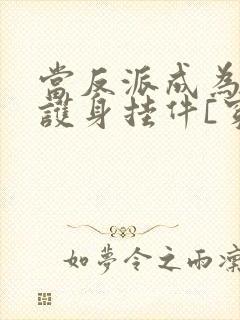 當反派成為
護身挂件[
如夢令之雨凜